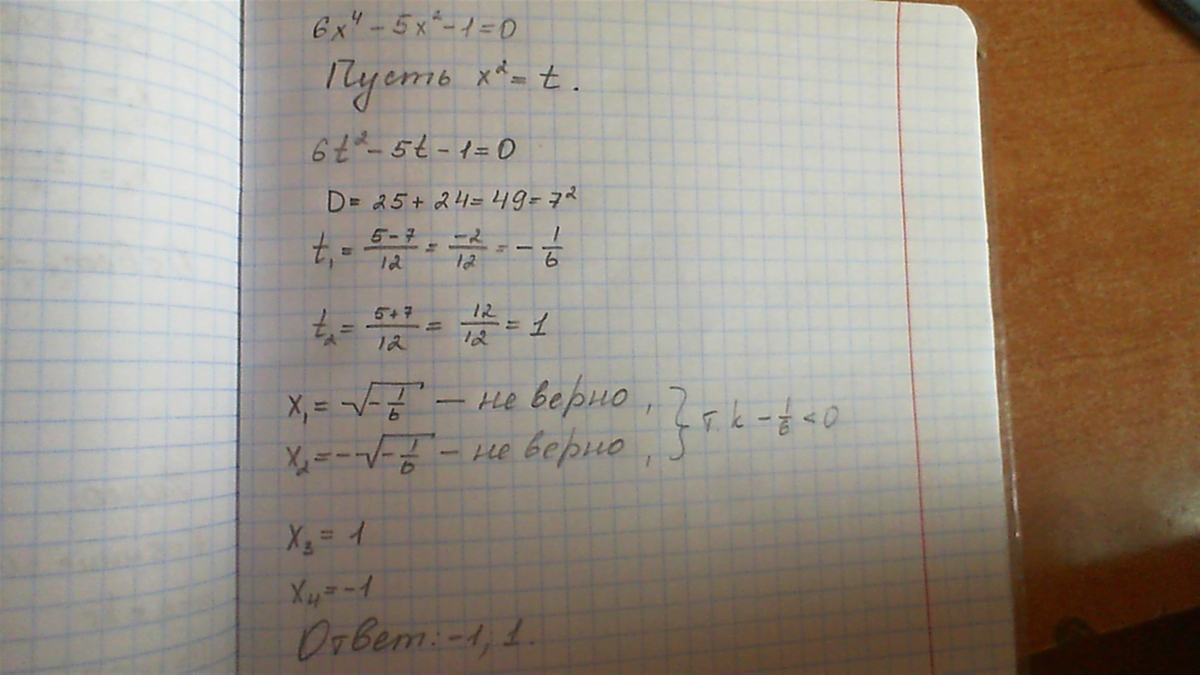 6x⁴ - 5x² - 1 = 0
Пусть x² = t.
6t² - 5t - 1 = 0
D = 25 + 24 = 49 = 7²
t₁ = (5-7)/12 = -2/12 = - 1/6
t₂ = (5+7)/12 = 12/12 = 1
x₁ = √(-1/6) — не верно, } т.k - 1/6 < 0
x₂ = -√(-1/6) - не верно,
x₃ = 1
x₄ = -1
Ответ: -1, 1.